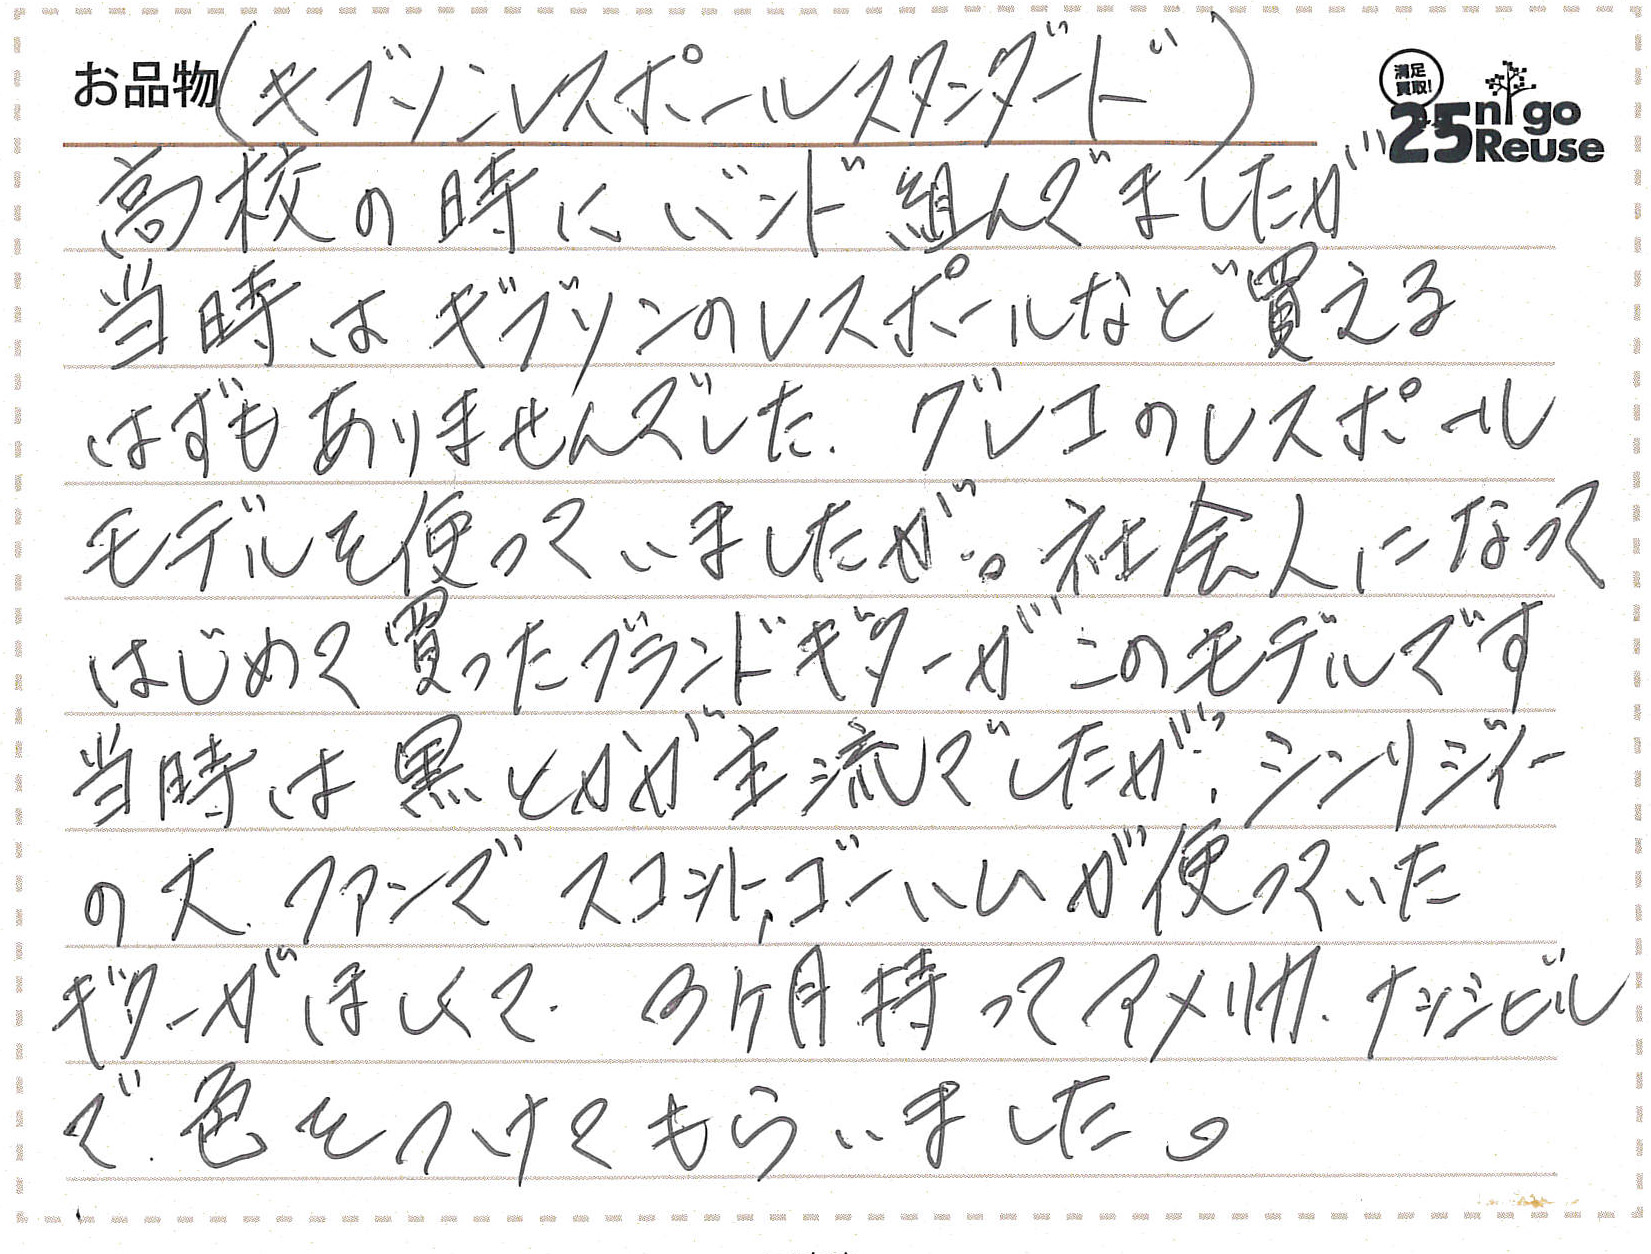 お品物(ギブソンレスポールスタンダード)
満足
買取!
25 nigo
Reuse
高校の時にバンド組んでましたが
当時はギブソンのレスポールなど買える
はずもありませんでした. グレコのレスポール
モデルを使っていましたが。社会人になって
はじめて買ったブランドギターがこのモデルです
当時は黒とかが主流でしたが、シンリジィー
の大ファンで スコット,ゴーハムが使っていた
ギターがほしくて. 3ケ月待ってアメリカ. ナッシビル
で. 色をつけてもらいました。